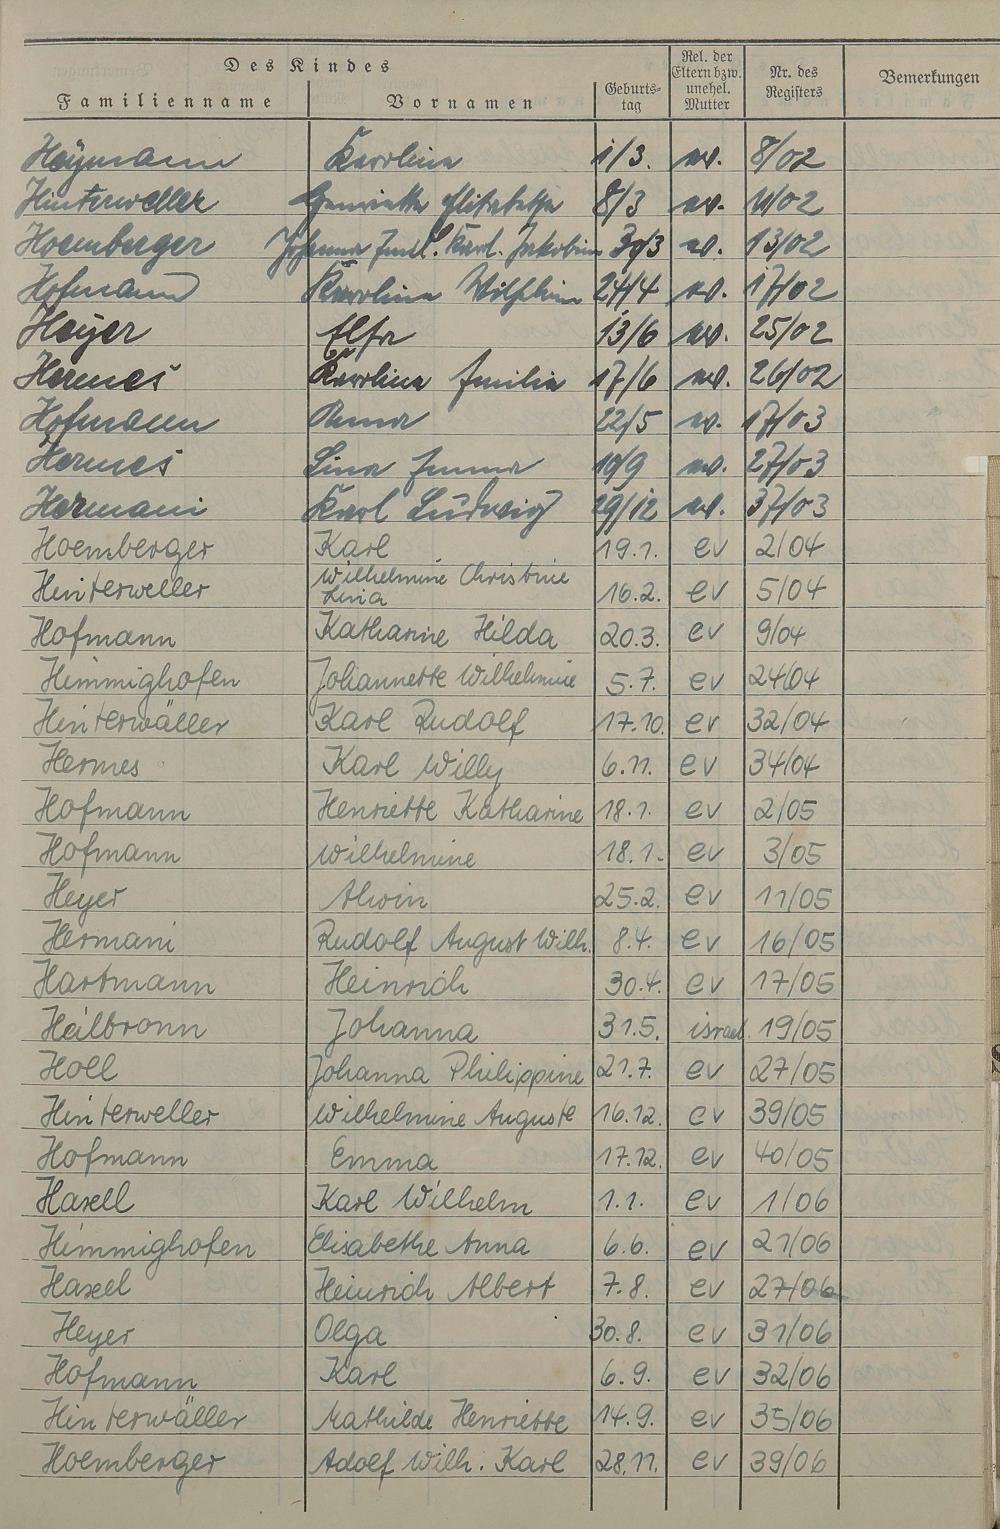 Des Kindes
Familienname Vornamen Geburts-tag Rel. der Eltern bzw. unehel. Mutter Nr. des Registers Bemerkungen
Heymann Karoline 1/3. ev. 8/02
Hinterweller Henriette Elisabetha 8/3 ev. 11/02
Hoemberger Johanna Karl. Jakobine ev. 13/02
Hofmann Karoline Wilhelmine 24/4 ev. 17/02
Heyer Elsa 13/6 ev. 25/02
Hermes Karoline Emilie 17/6 ev. 26/02
Hofmann Anna 22/5 ev. 17/03
Hermes Lina Emma 10/9 ev. 27/03
Hermani Karl Ludwig 29/12 ev. 37/03
Hoemberger Karl 19.1. ev 2/04
Hinterweller Wilhelmine Christine Lina 16.2. ev 5/04
Hofmann Katharine Hilda 20.3. ev 9/04
Himmighofen Johannette Wilhelmine 5.7. ev 24/04
Hinterwäller Karl Rudolf 17.10. ev 32/04
Hermes Karl Willy 6.11. ev 34/04
Hofmann Henriette Katharine 18.1. ev 2/05
Hofmann Wilhelmine 18.1. ev 3/05
Heyer Alwin 25.2. ev 11/05
Hermani Rudolf August Wilh. 8.4. ev 16/05
Hartmann Heinrich 30.4. ev 17/05
Heilbronn Johanna 31.5. israel. 19/05
Holl Johanna Philippine 21.7. ev 27/05
Hinterweller Wilhelmine Auguste 16.12. ev 39/05
Hofmann Emma 17.12. ev 40/05
Haxell Karl Wilhelm 1.1. ev 1/06
Himmighofen Elisabethe Anna 6.6. ev 21/06
Haxel Heinrich Albert 7.8. ev 27/06
Heyer Olga 30.8. ev 31/06
Hofmann Karl 6.9. ev 32/06
Hinterwäller Mathilde Henriette 14.9. ev 35/06
Hoemberger Adolf Wilh. Karl 28.11. ev 39/06